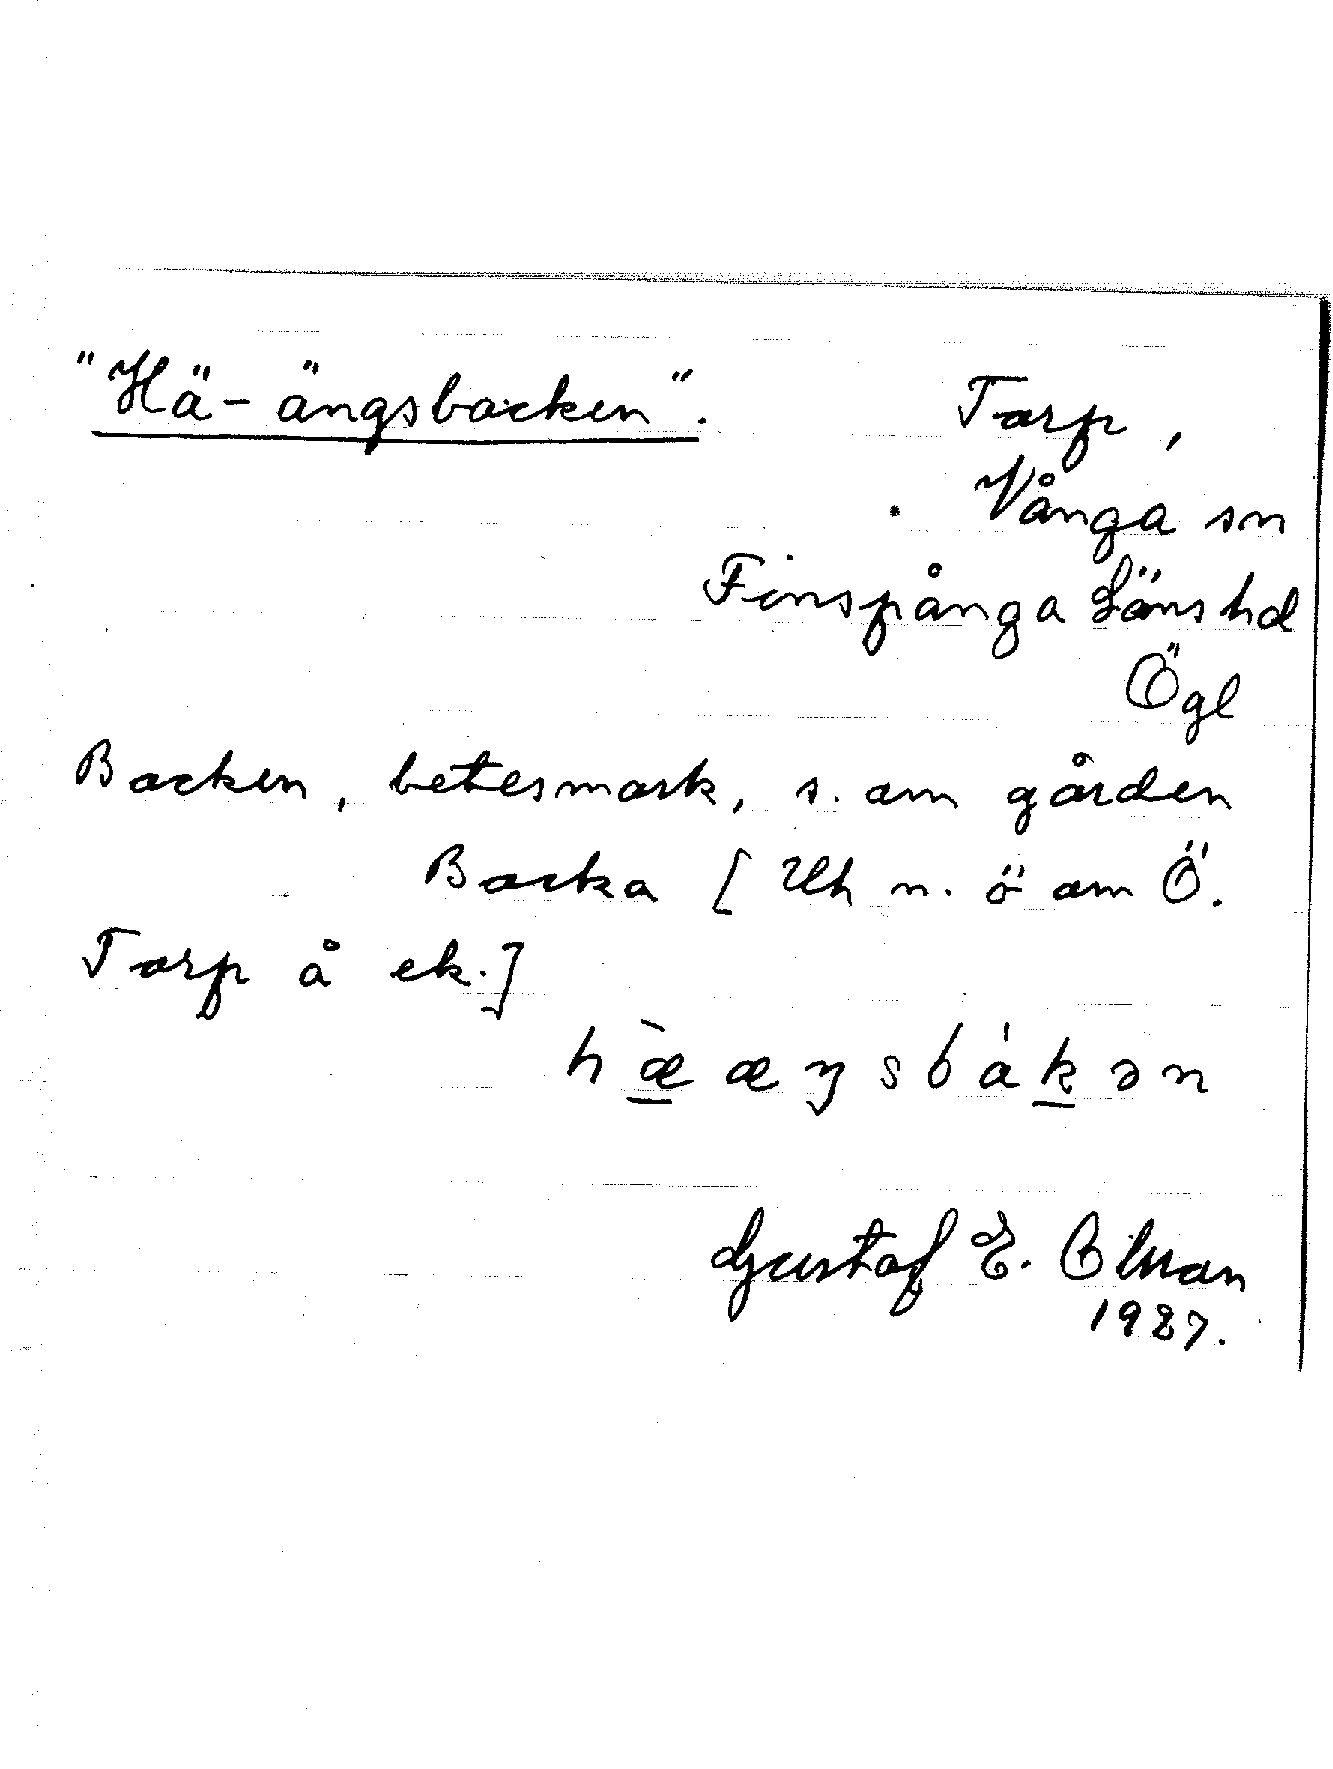 "Hä-ängsbacken". Torp,
Vånga sn
Finspånga Läns hd
Ögl
Backen, betesmark, s. om gården
Backa [Uh n. ö om Ö.
Torp å ek.]
hæ̀æŋsbákən
Gustaf E. Olson
1927.